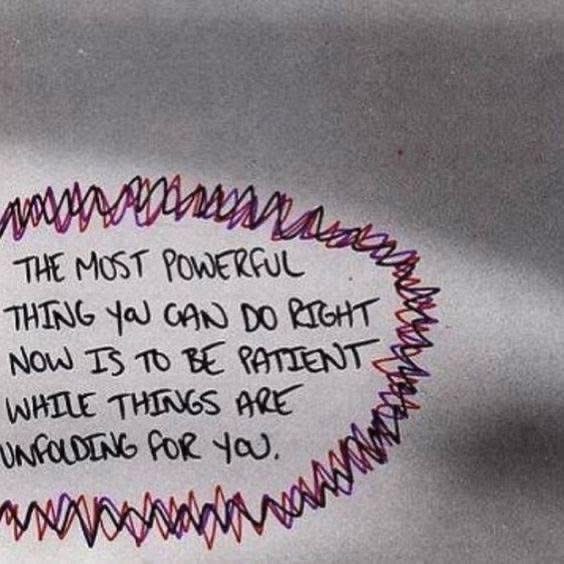 THE MOST POWERFUL
THING YOU CAN DO RIGHT
NOW IS TO BE PATIENT
WHILE THINGS ARE
UNFOLDING FOR YOU.